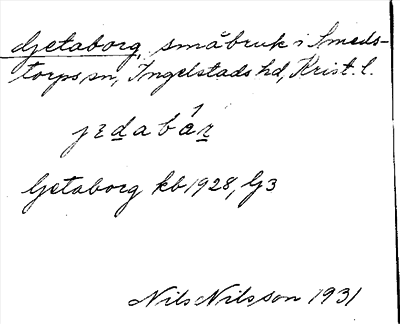 Getaborg, småbruk i Smeds-
torps sn, Ingelstads hd, Krist. l.
Getaborg kb 1928, G3
Nils Nilsson 1931